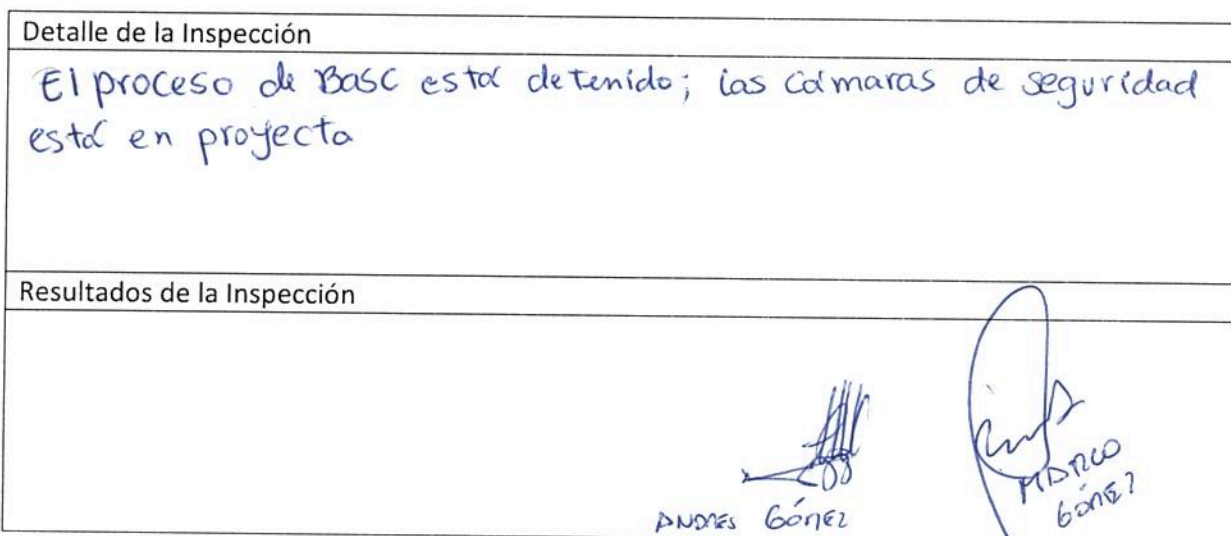 Detalle de la Inspección
El proceso de Basc está detenido; las cámaras de seguridad
está en proyecto
Resultados de la Inspección
ANDRES GÓMEZ
MARCO
GÓMEZ